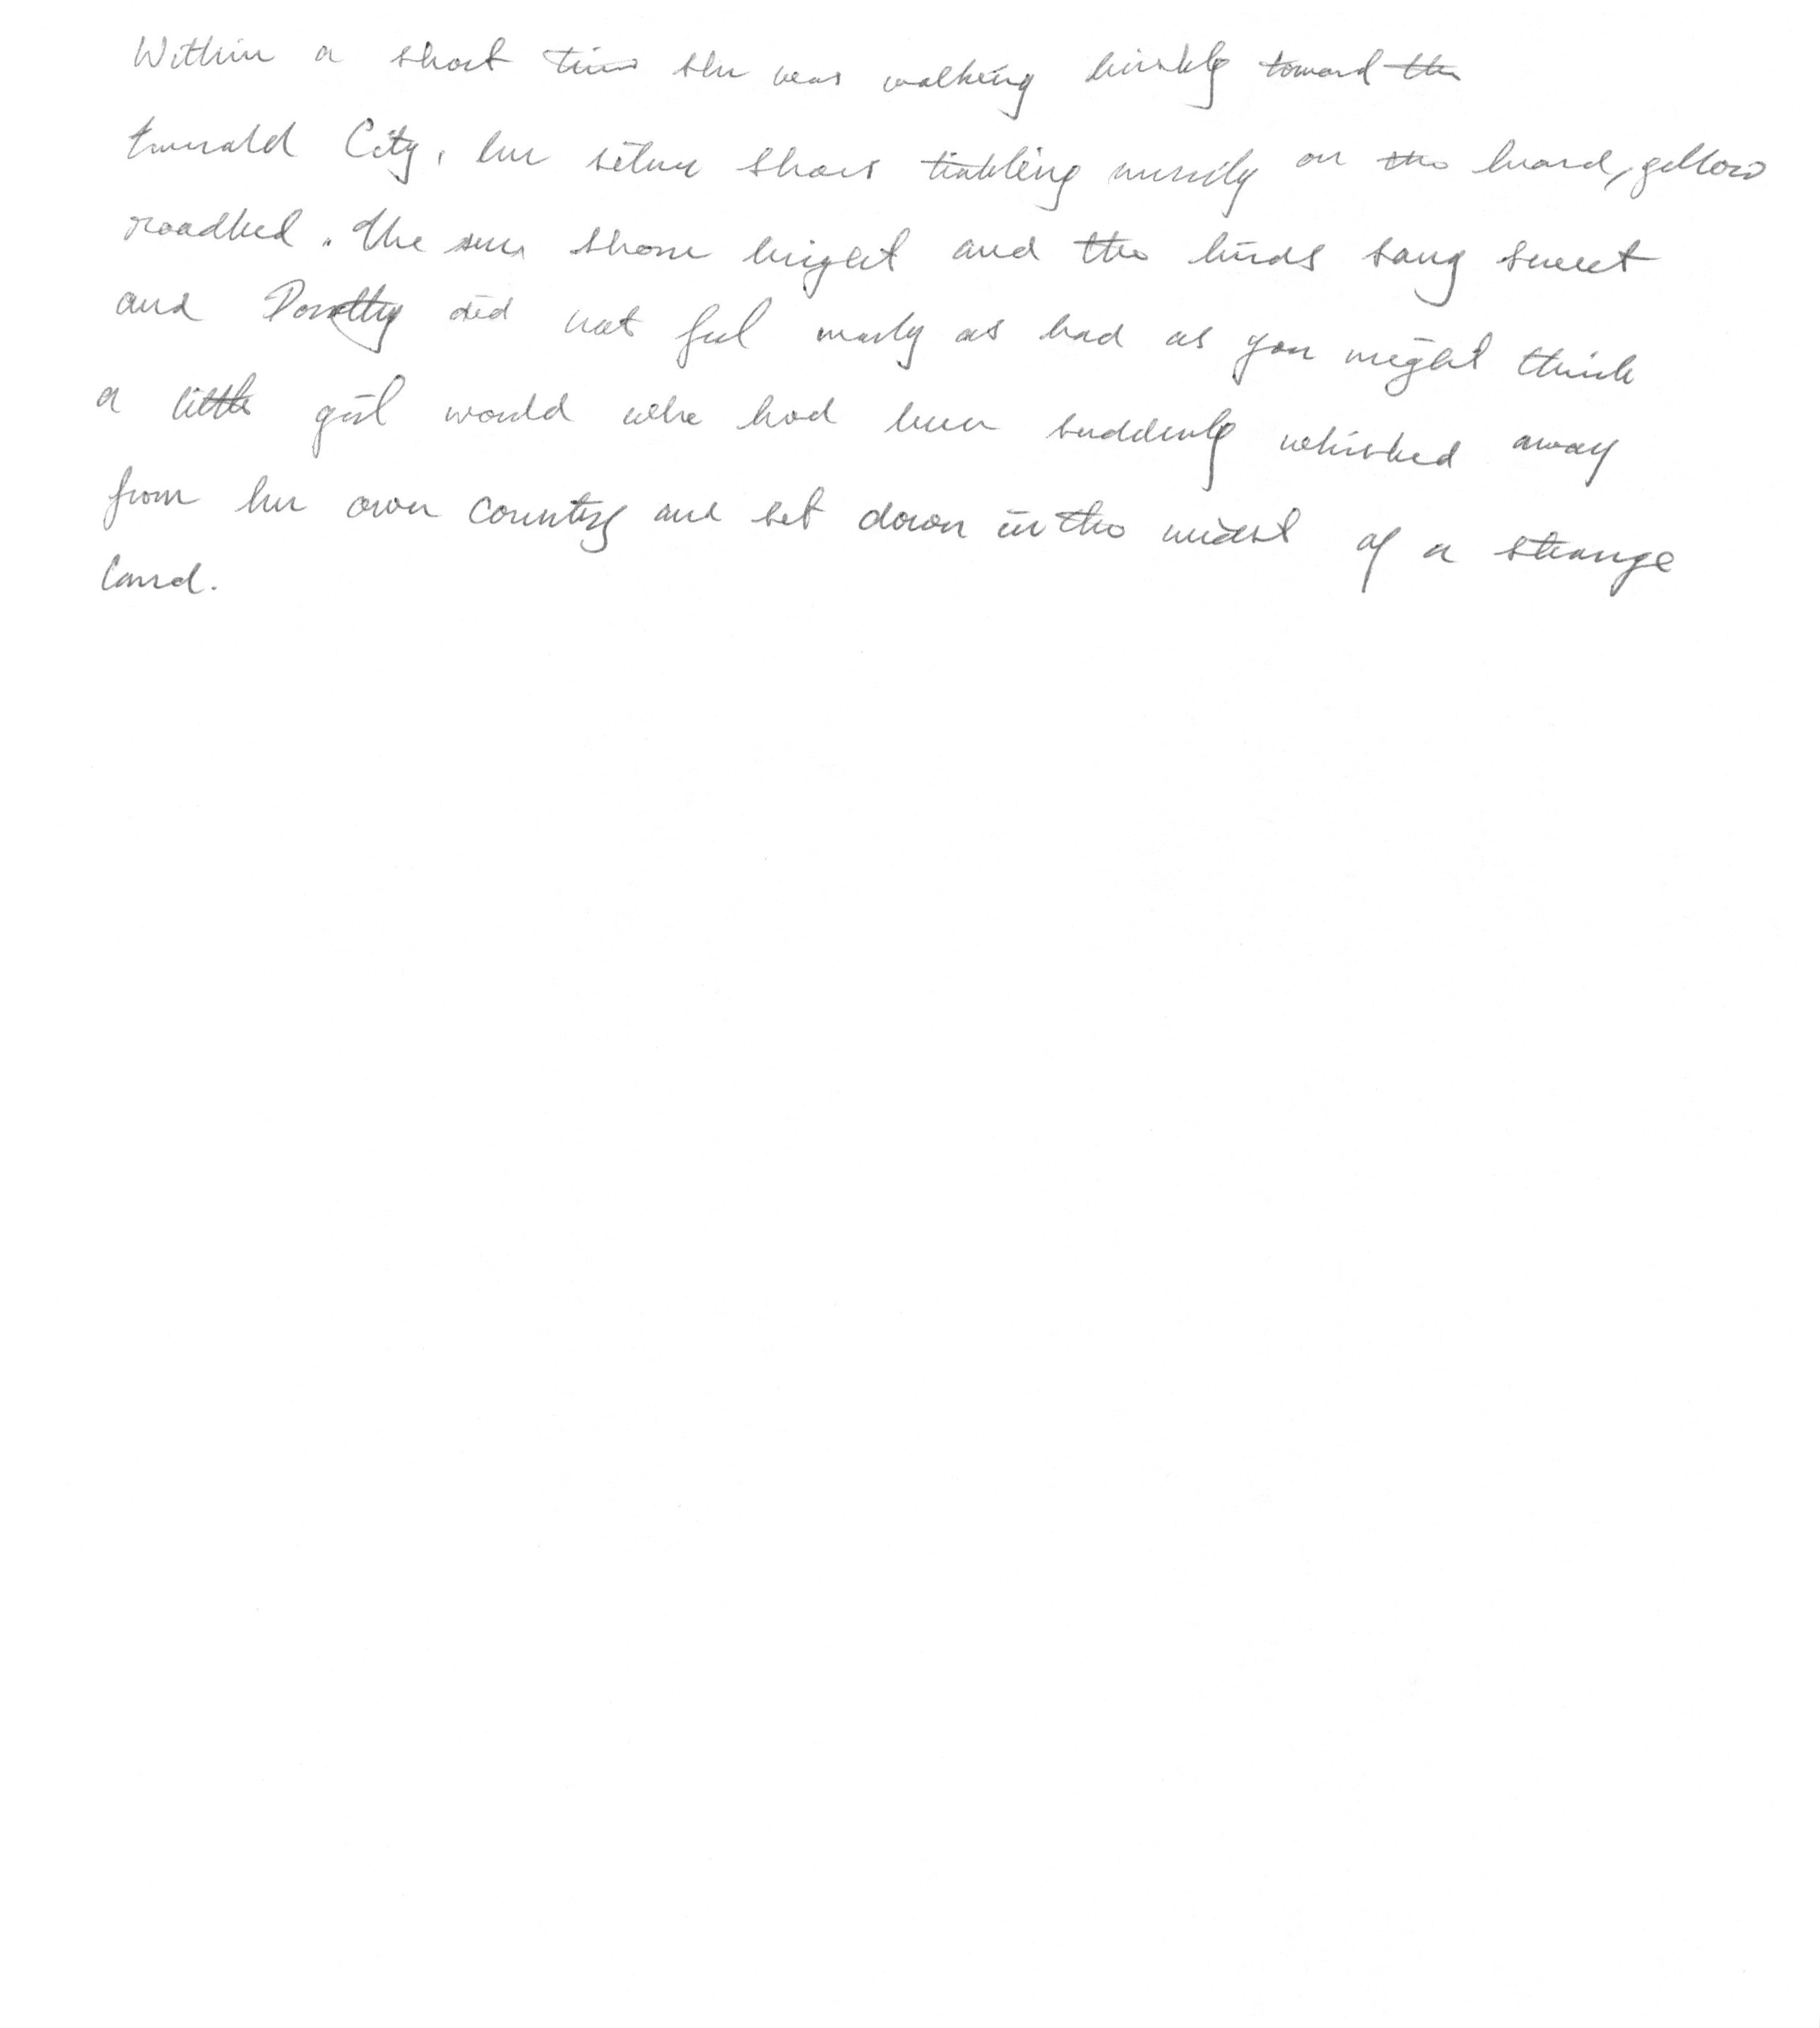 Within a short time she was walking briskly toward the
Emerald City, her silver shoes tinkling merrily on the hard, yellow
roadbed. The sun shone bright and the birds sang sweet
and Dorothy did not feel nearly as bad as you might think
a little girl would who had been suddenly whisked away
from her own country and set down in the midst of a strange
land.